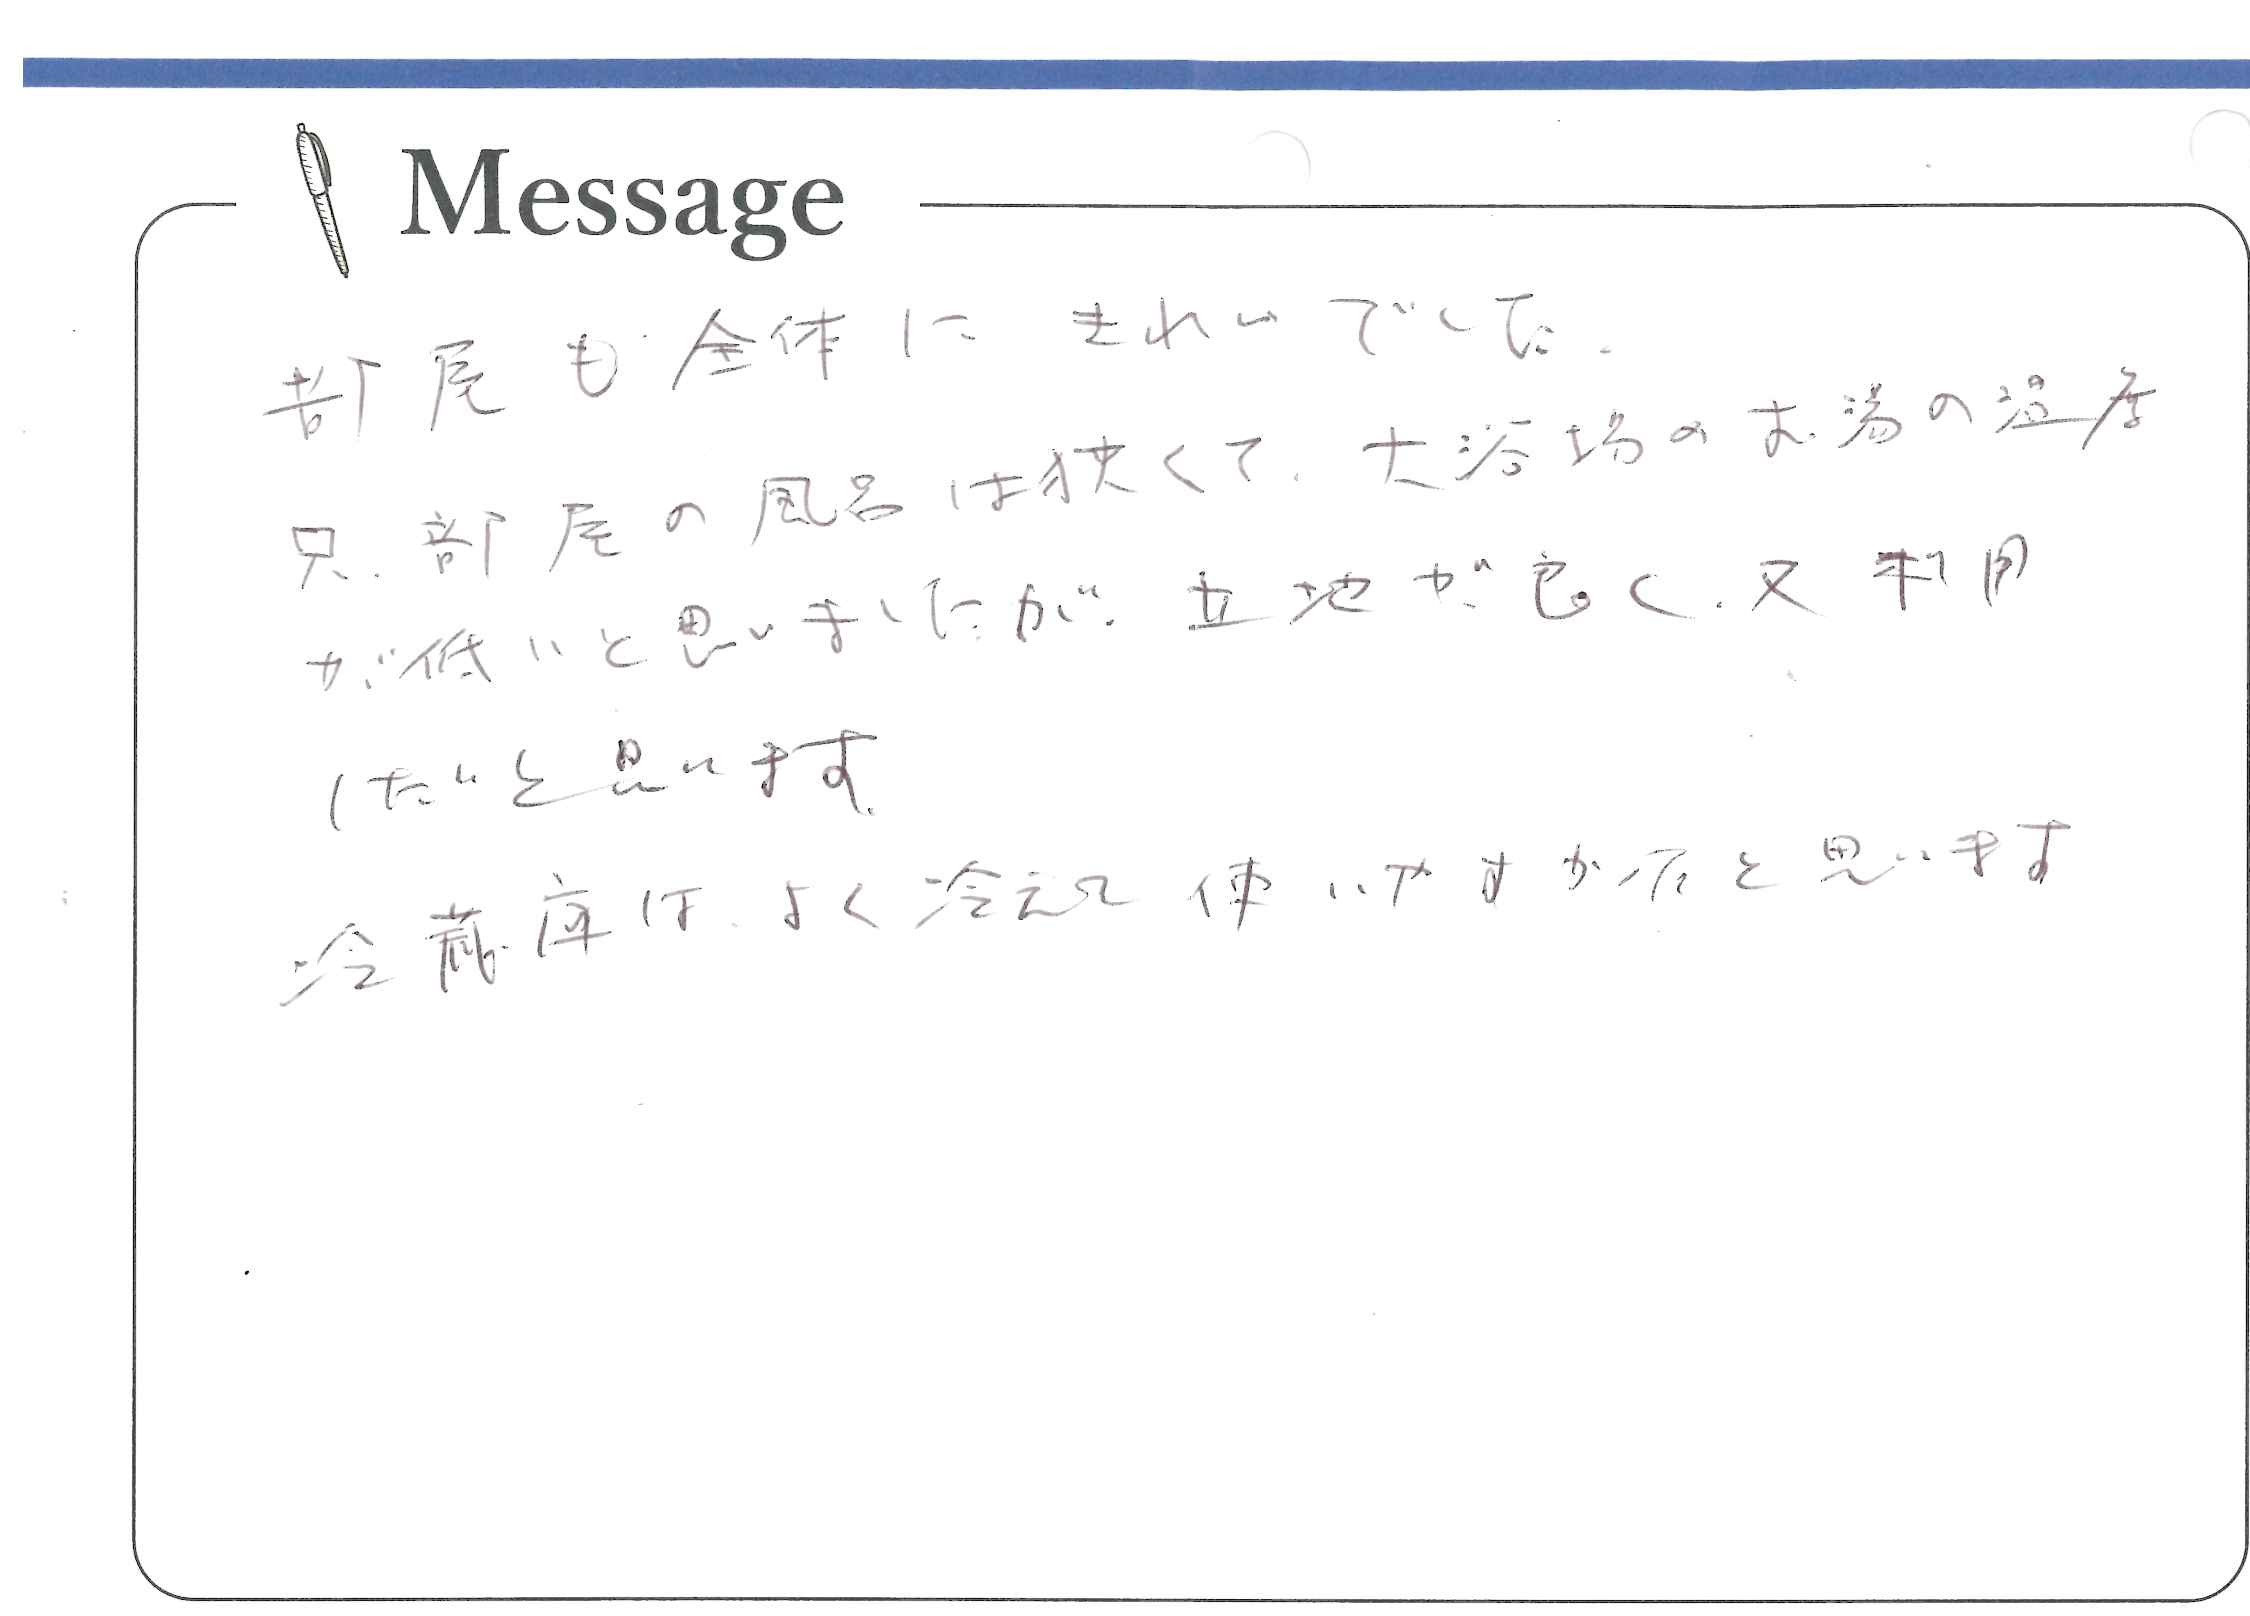 Message
部屋も全体にきれいでした.
只、部屋の風呂は狭くて、大浴場のお湯の温度
が低いと思いましたが、立地が良く、又利用
したいと思います.
冷蔵庫は、よく冷えて使いやすかったと思います